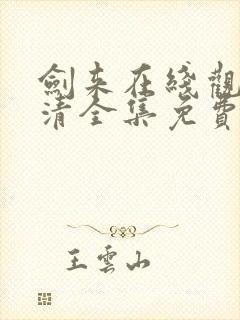 劍来在綫觀
清全集免費
王雲山